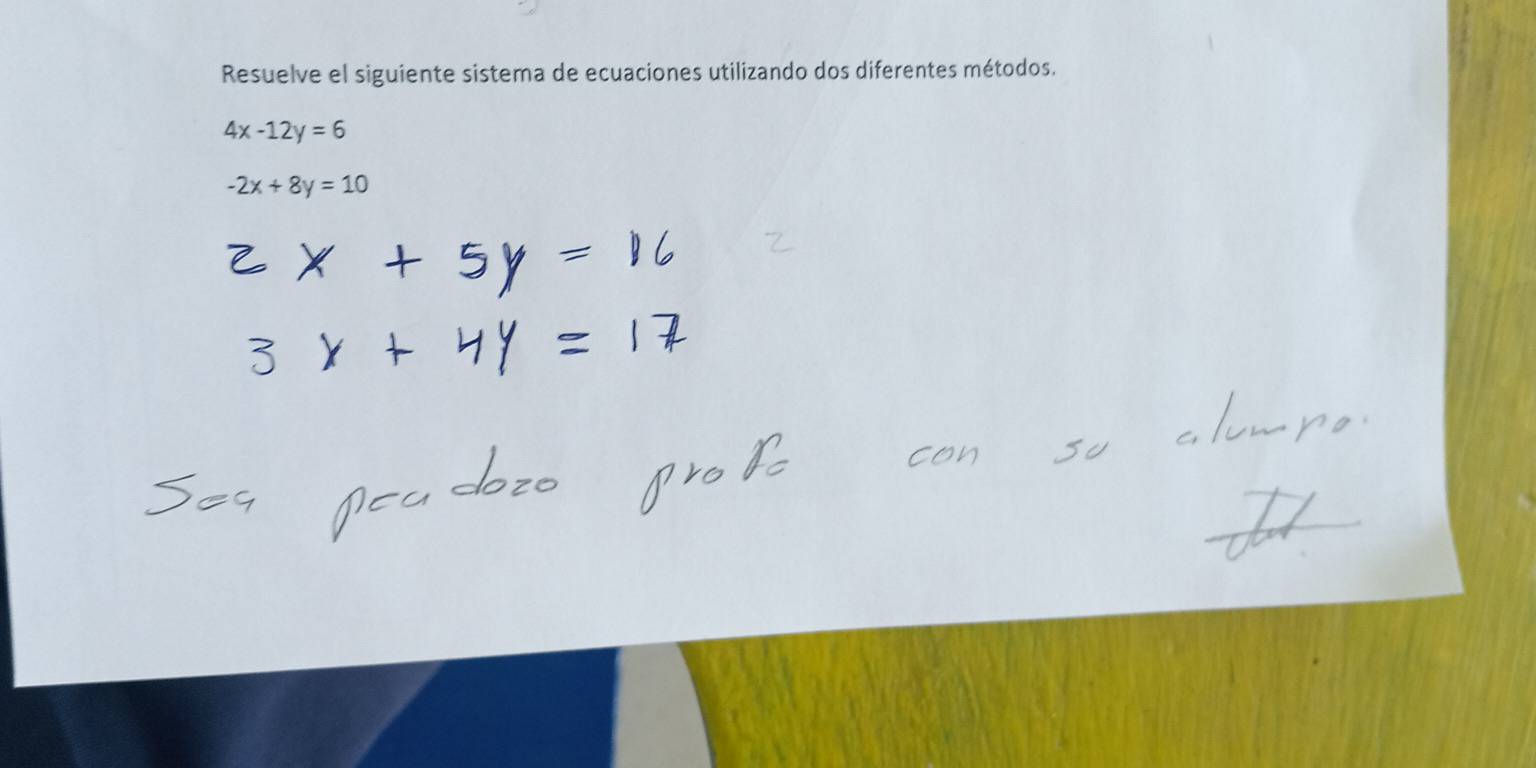 Resuelve el siguiente sistema de ecuaciones utilizando dos diferentes métodos.
4x -12y = 6
-2x + 8y = 10
2x + 5y = 16 2
3x + 4y = 17
Sea peadozo profe con su alumno.